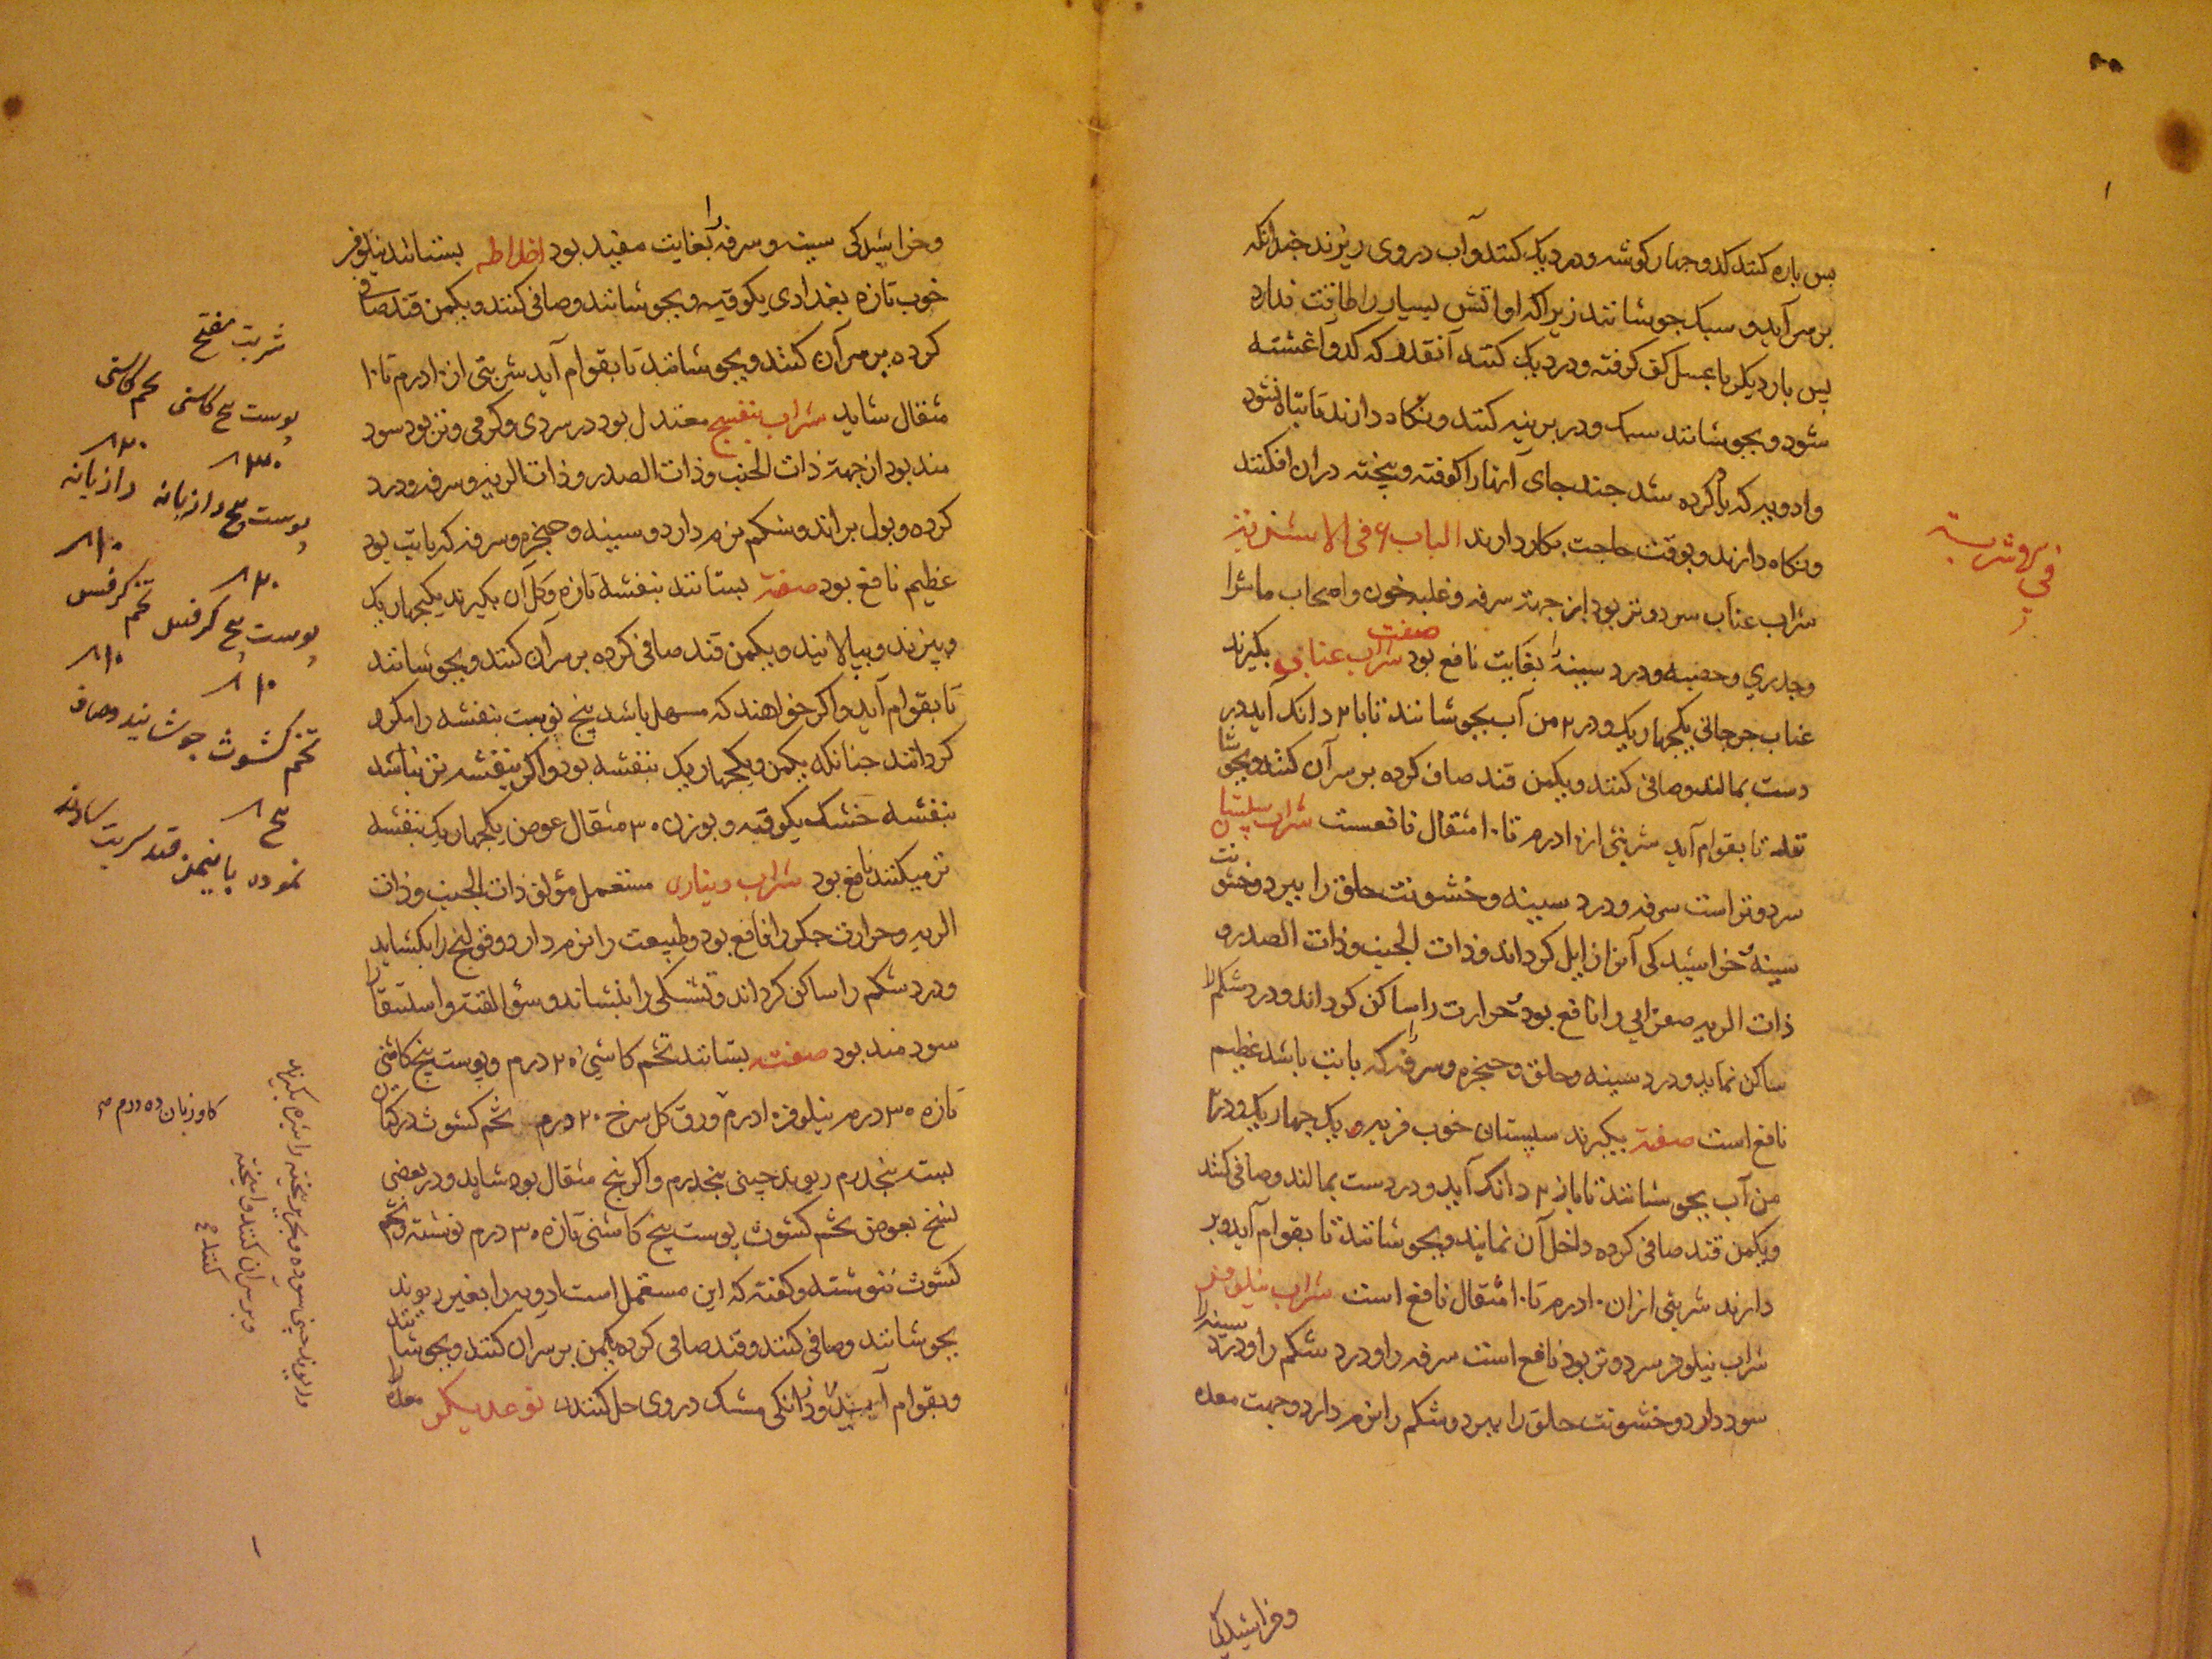 پس پاره کنند کدو چهار کوشه و در دیک کنند و آب در وی ریزند چندانکه
بر سر آید و سبک جوشانند زیرا که او آتش بسیار را طاقت ندارد
پس بار دیکر با عسل کف کرفته و در دیک کنند آنقدر که کدو آغشته
شود و بجوشانند سبک و در برنیه کنند و نکاه دارند تا تباه نشود
و ادویه که یاد کرده شد چند جای آنها را کوفته و بیخته در ان افکنند
و نکاه دارند و بوقت حاجت بکار دارند الباب ۶ فی الاشربة
شراب عناب سرد و تر بود از جهة سرفه و غلبه خون و اصحاب ماشرا
و جدري و حصبه و درد سینه بغایت نافع بود صفت شراب عناب بکیرند
عناب جرجانی یکچهاریک و در ۲ من آب بجوشانند تا با ۲ دانک آید در
دست بمالند و صافی کنند و یکمن قند صاف کرده بر سر آن کنند و بجوشا
نند تا بقوام آید شربتی از ۱۰ درم تا ۱۰ مثقال نافعست شراب سپستان
سرد و تر است سرفه و درد سینه و خشونت حلق را ببرد و خشونت
سینه خراشیدکی آنرا زایل کرداند و ذات الجنب و ذات الصدر و
ذات الریه صفرایی را نافع بود حرارت را ساکن کرداند و درد شکم را
ساکن نماید و درد سینه و حلق و حنجره و سرفه که با تب باشد عظیم
نافع است صفة بکیرند سپستان خوب فربه یک چهاریک و در ۲
من آب بجوشانند تا باز ۲ دانک آید و در دست بمالند و صافی کنند
و یکمن قند صافی کرده داخل آن نمایند و بجوشانند تا بقوام آید و بر
دارند شربتی از ان ۱۰ درم تا ۱۰ مثقال نافع است شراب نیلوفر
شراب نیلوفر سرد و تر بود نافع است سرفه را و درد شکم را و درد سینه را
سود دارد و خشونت حلق را ببرد و شکم را نرم دارد و جهت معده
و خراشیدکی
فی الاشربة
و خراشیدکی سینه و سرفه را بغایت مفید بود اخلاطه بستانند نیلوفر
خوب تازه بغدادی یکوقیه و بجوشانند و صافی کنند و یکمن قند صافی
کرده بر سر آن کنند و بجوشانند تا بقوام آید شربتی از ۱۰ درم تا ۱۰
مثقال شاید شراب بنفسج معتدل بود در سردی و کرمی و تر بود سود
مند بود از جهة ذات الجنب و ذات الصدر و ذات الریه و سرفه و درد
کرده و بول براند و شکم نرم دارد و سینه و حنجره و سرفه که با تب بود
عظیم نافع بود صفة بستانند بنفشه تازه و کل آن بکیرند یکچهاریک
و بپزند و بپالایند و یکمن قند صافی کرده بر سر آن کنند و بجوشانند
تا بقوام آید و اکر خواهند که مسهل باشد پنج نوبت بنفشه را مکرر
کردانند چنانکه یکمن و یکچهاریک بنفشه بود و اکر بنفشه تر نباشد
بنفشه خشک یکوقیه و بوزن ۳۰ مثقال عوض یکچهاریک بنفشه
تر میکنند نافع بود شراب دیناری مستعمل مؤلف ذات الجنب و ذات
الریه و حرارت جکر را نافع بود و طبیعت را نرم دارد و قولنج را بکشاید
و درد شکم را ساکن کرداند و تشنکی را بنشاند و سؤ القنیه و استسقا را
سودمند بود صفته بستانند تخم کاسنی ۲۰ درم و پوست بیخ کاسنی
تازه ۳۰ درم نیلوفر ۱۰ درم ورق کل سرخ ۲۰ درم تخم کشوث در کتان
بست پنجدرم ریوند چینی پنجدرم و اکر پنج مثقال بود شاید و در بعضی
نسخ بعوض تخم کشوث پوست بیخ کاسنی تازه ۳۰ درم نوشته و تخم
کشوث ننوشته و کفته که این مستعمل است ادویه را بغیر ریوند
بجوشانند و صافی کنند و قند صافی کرده یکمن بر سر ان کنند و بجوشانند
و بقوام آید و دانکی مشک در وی حل کنند نوع دیکر معده را
شربت مفتح
پوست بیخ کاسنی تخم کاسنی
پوست بیخ رازیانه رازیانه
پوست بیخ کرفس تخم کرفس
تخم کشوث جوشانیده صاف
نموده با نیمن قند شربت سازند
کاوزبان ده درم